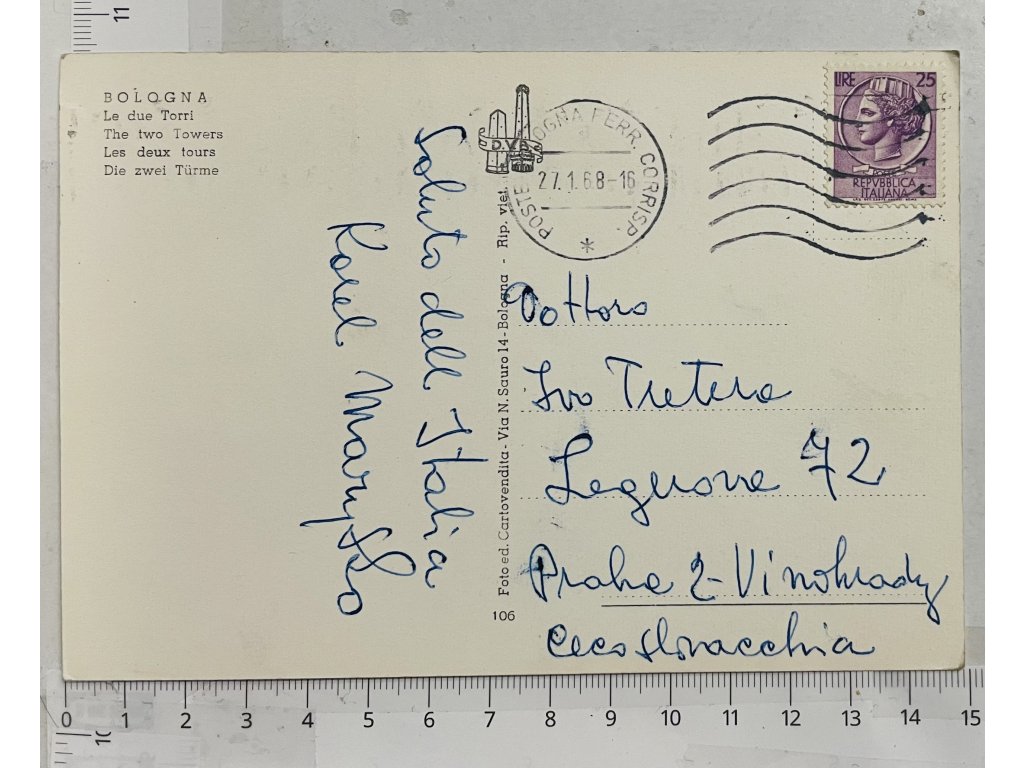 BOLOGNA
Le due Torri
The two Towers
Les deux tours
Die zwei Türme
Saluto dell Italia
Karel
D.V.
POSTE BOLOGNA FERR. CORRISP.
27.1.68-16
*
LIRE 25
REPVBBLICA
ITALIANA
Foto ed. Cartovendita - Via N. Sauro 14 - Bologna - Rip. viet.
106
Dottore
Ivo Tretera
72
Praha 2-Vinohrady
Cecoslovacchia
11
10
0 1 2 3 4 5 6 7 8 9 10 11 12 13 14 15